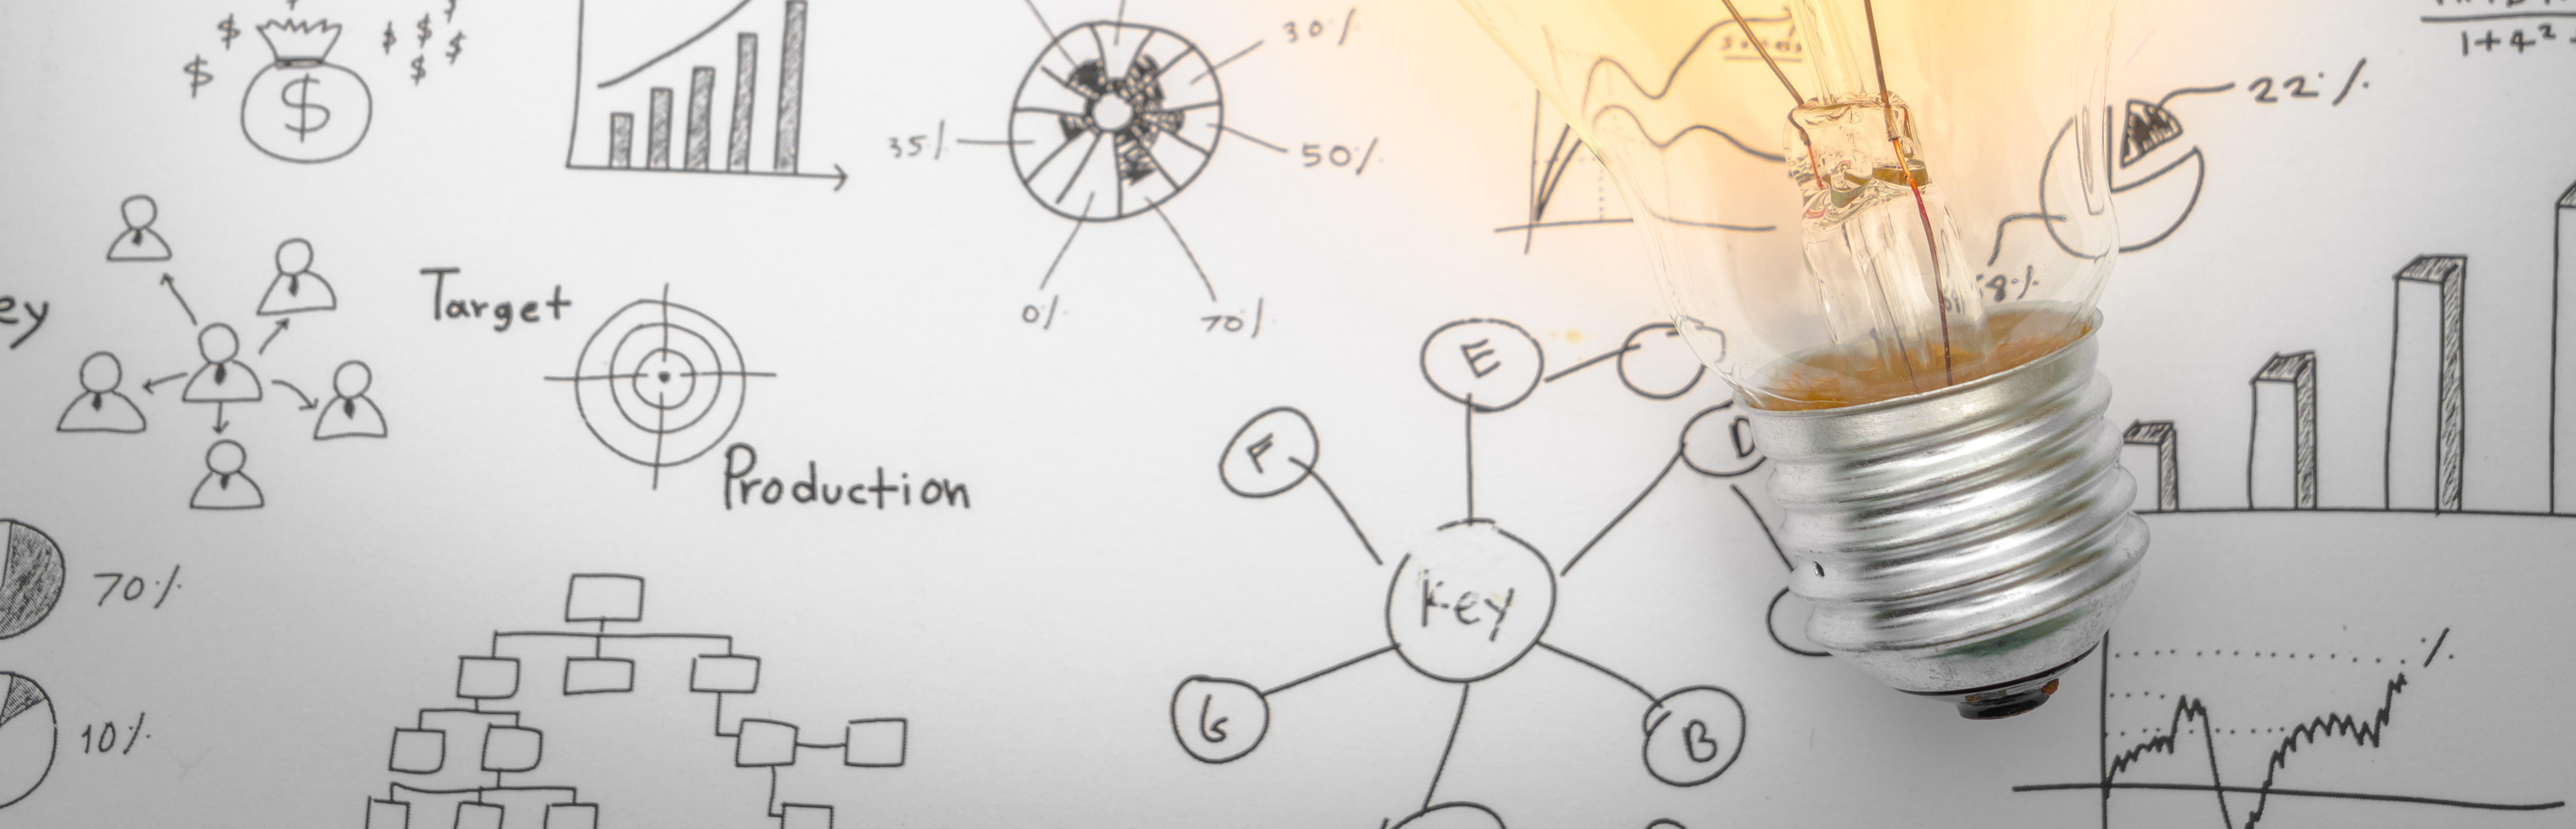 $
$ $ $ $ $
$
30%
35%
50%
0%
70%
22%
1+4²
ey
Target
Production
E
F
D
Key
G
B
70%
10%
%